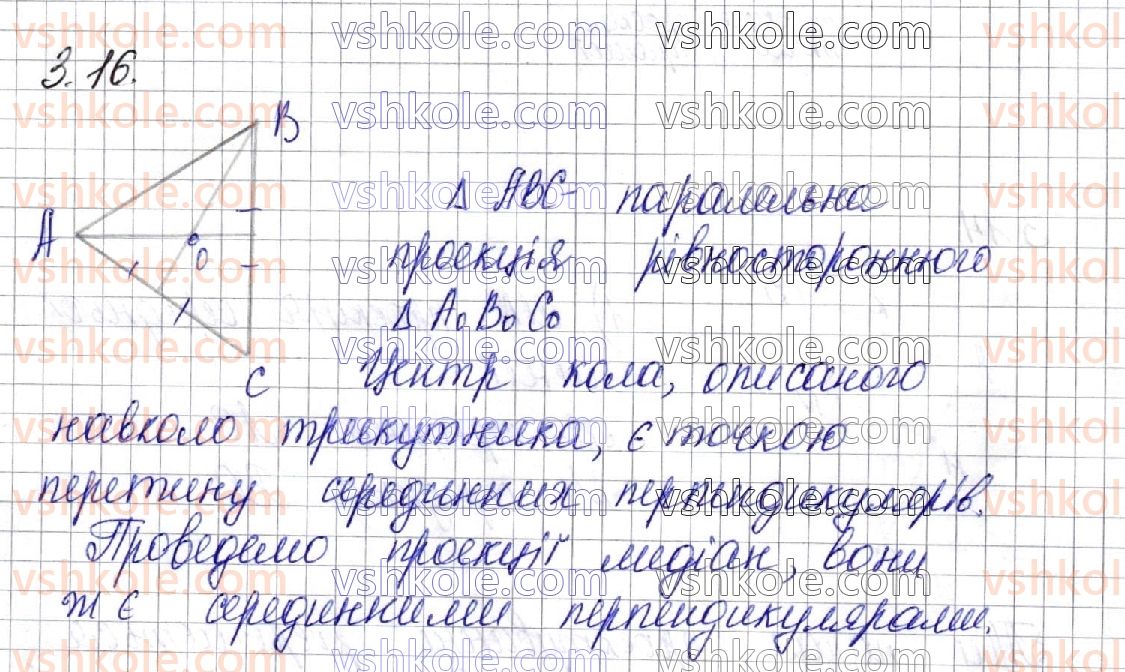 3.16.
B
A
O
C
Δ ABC - паралельна
проекція рівностороннього
Δ A₀B₀C₀
Центр кола, описаного
навколо трикутника, є точкою
перетину серединних перпендикулярів.
Проведемо проекції медіан, вони
ж є серединними перпендикулярами.
vshkole.com